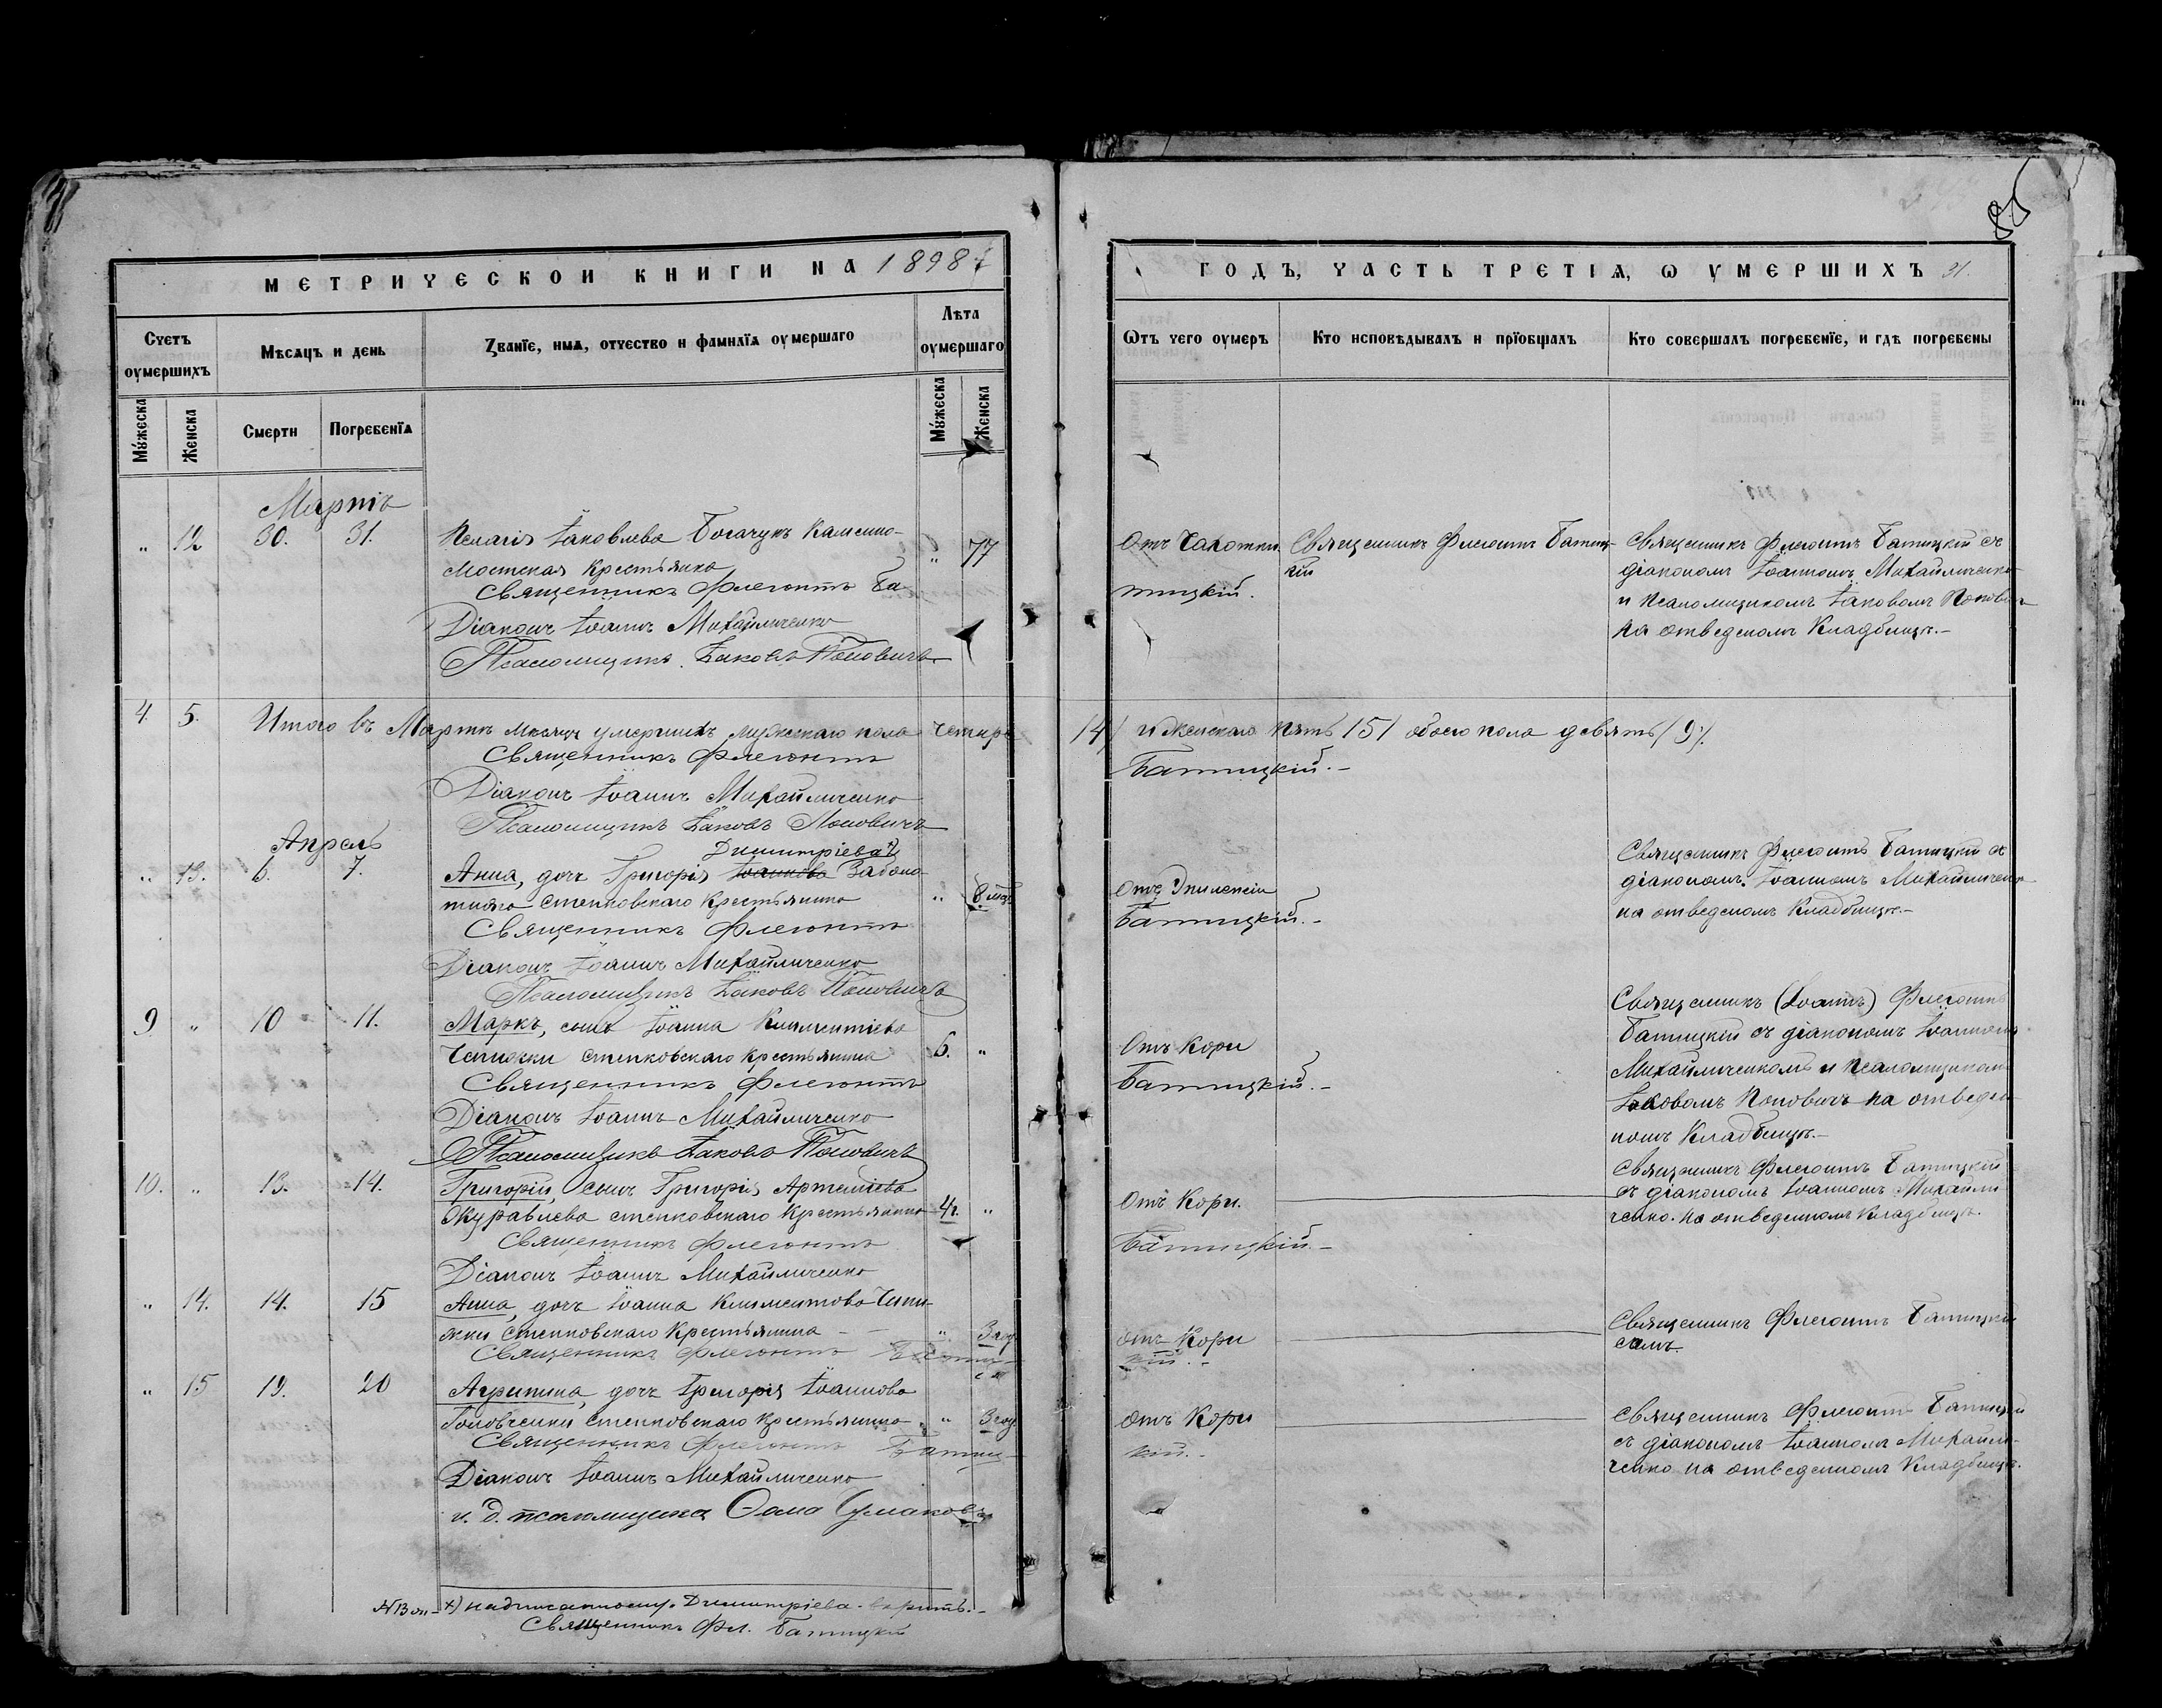 МЕТРИЧЕСКОЙ КНИГИ НА 1898
Счетъ оумершихъ
Мѣсяцъ и день
Званїе, имя, отчество и фамилїя оумершаго
Лѣта оумершаго
Мужеска
Женска
Смерти
Погребенїя
Мужеска
Женска
Мартъ
" 12 30. 31. Пелагія Іаковлева Богачукъ Каменно- " 77
мостская крестьянка
Священникъ Флегонтъ Ба
Діаконъ Іоаннъ Михайличенко
Псаломщикъ Іаковъ Поповичъ
4. 5. Итого въ Мартѣ мѣсяцѣ умершихъ мужскаго пола четыре
Священникъ Флегонтъ
Діаконъ Іоаннъ Михайличенко
Псаломщикъ Іаковъ Поповичъ
Апрель
Димитріева
" 13. 6. 7. Анна, дочь Григорія Іоаннова Заболо-
тняго степковскаго крестьянина " 8 мѣс
Священникъ Флегонтъ
Діаконъ Іоаннъ Михайличенко
Псаломщикъ Іаковъ Поповичъ
9 " 10 11. Маркъ, сынъ Іоанна Климентіева
степковскаго крестьянина 6. "
Священникъ Флегонтъ
Діаконъ Іоаннъ Михайличенко
Псаломщикъ Іаковъ Поповичъ
10. " 13. 14. Григорій, сынъ Григорія Артеміева
Журавлева степковскаго крестьянина 4 г. "
Священникъ Флегонтъ
Діаконъ Іоаннъ Михайличенко
" 14. 14. 15 Анна, дочь Іоанна Климентова Чепи-
жки степковскаго крестьянина " 3 год
Священникъ Флегонтъ Батиц-
" 15 19. 20 Агрипина, дочь Григорія Іоаннова
Головченки степковскаго крестьянина " 3 год
Священникъ Флегонтъ Батиц-
Діаконъ Іоаннъ Михайличенко
и. д. псаломщика Ѳома
х) надписанному: Димитріева - вѣрить.-
Священникъ Фл. Батицкій
ГОДЪ, ЧАСТЬ ТРЕТІЯ, Ѡ ОУМЕРШИХЪ 31.
Ѿтъ чего оумеръ
Кто исповѣдывалъ и прїобщалъ
Кто совершалъ погребенїе, и гдѣ погребены
Отъ чахотки. Священникъ Флегонтъ Батиц-
кій
тицкій.
Священникъ Флегонтъ Батицкій съ
діакономъ Іоанномъ Михайличенко
и псаломщикомъ Іаковомъ Попович
на отведеномъ кладбищѣ.-
/4/ и женскаго пять /5/ обоего пола девять /9/.
Батицкій.-
Отъ Эпилепсіи
Батицкій.-
Священникъ Флегонтъ Батицкій съ
діакономъ Іоанномъ Михайличенк
на отведеномъ кладбищѣ.-
Отъ Кори
Батицкій.-
Священникъ (Іоаннъ) Флегонтъ
Батицкій съ діакономъ Іоанномъ
Михайличенкомъ и псаломщиком
Іаковомъ Поповичъ на отведен-
номъ кладбищѣ.-
Отъ Кори.
Батицкій.-
Священникъ Флегонтъ Батицкій
съ діакономъ Іоанномъ Михайли
ченко. на отведенномъ кладбищѣ.
Отъ Кори
кій.-
Священникъ Флегонтъ Батицкій
самъ.
Отъ Кори
кій.-
Священникъ Флегонтъ Батицкій
съ діакономъ Іоанномъ Михайли-
ченко на отведенномъ кладбищѣ.